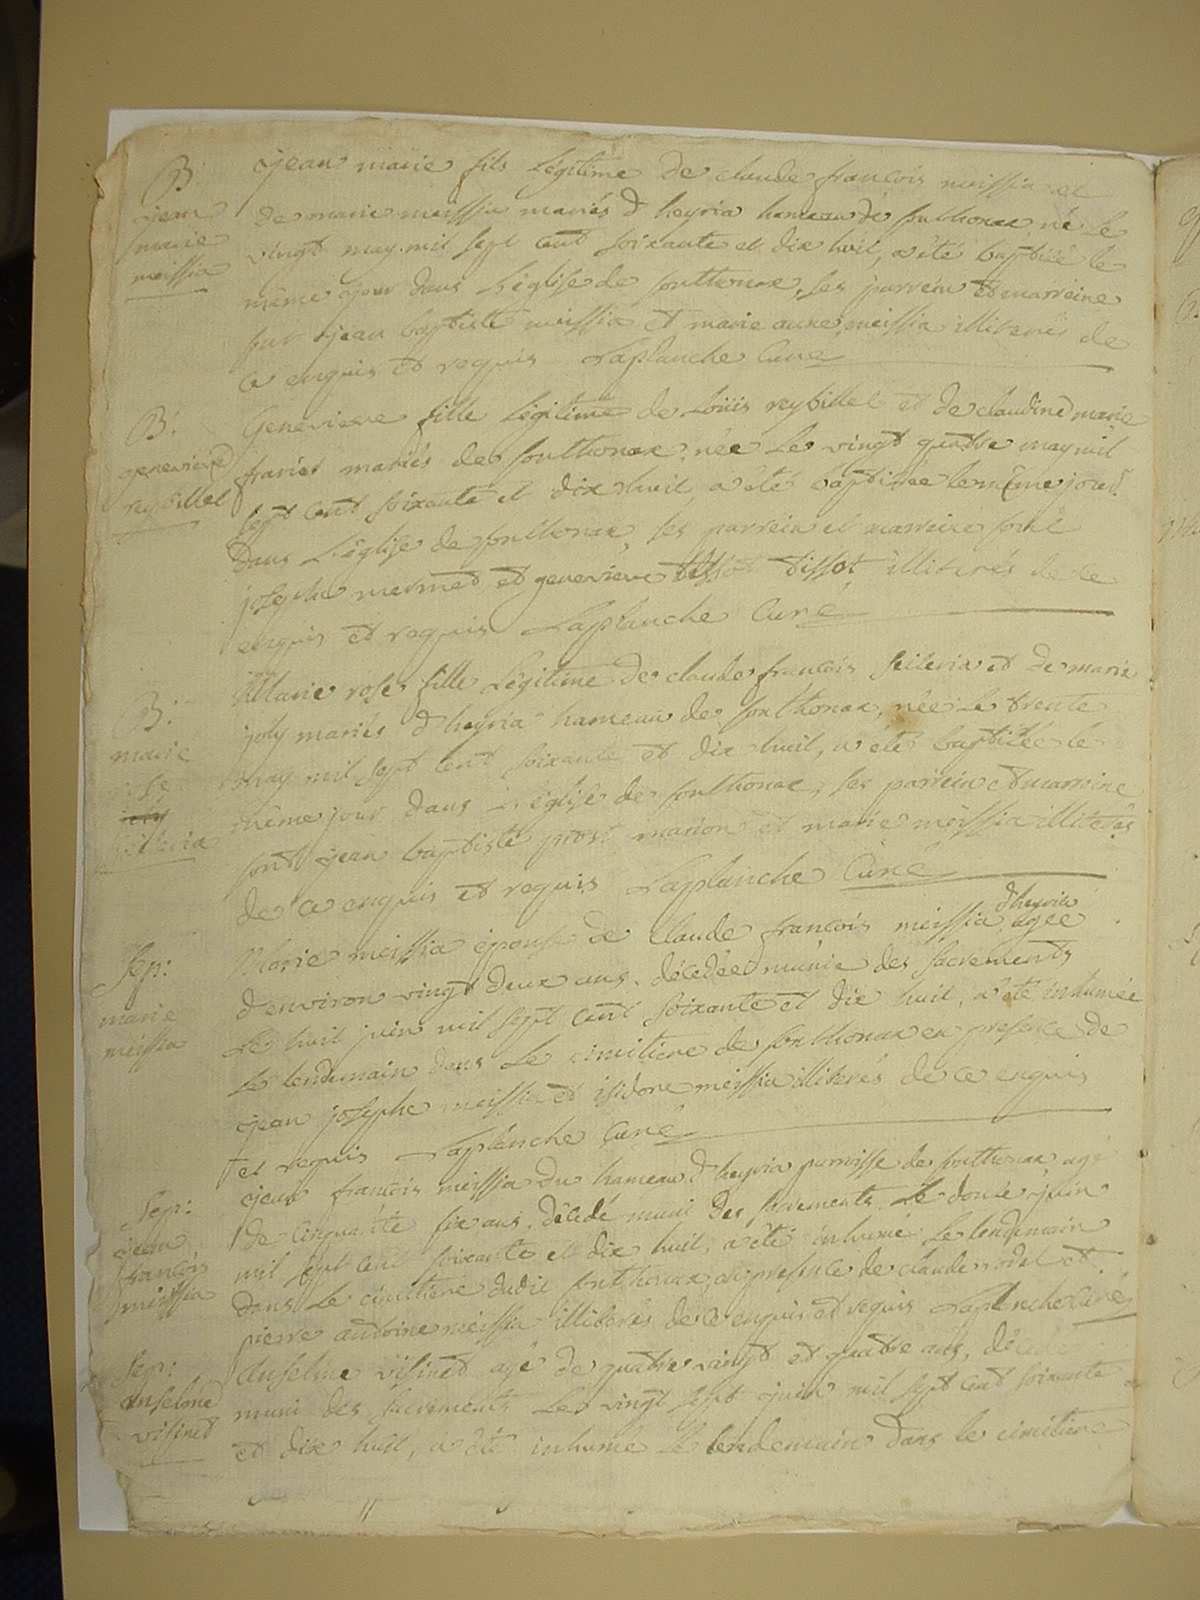 B
jean
marie
meissia
jean marie fils légitime de claude francois meissia et
de marie meissia mariés d heyria hameau de sonthonax né le
vingt may mil sept cent soixante et dix huit, a été baptisé le
même jour dans l'église de sonthonax, ses parrein et marreine
sont jean baptiste meissia et marie anne meissia illiterés de
ce enquis et requis Laplanche Curé
B:
genevieve
reybillet
Genevieve fille légitime de Loüis reybillet et de claudine marie
mariés de sonthonax, née le vingt quatre may mil
sept cent soixante et dix huit, a été baptisée le même jour
dans l'église de sonthonax, ses parrein et marreine sont
josephe mermet et genevieve tissot illiterés de ce
enquis et requis Laplanche Curé
B:
marie
rose
Marie rose fille légitime de claude francois seileria et de marie
joly mariés d heyria hameau de sonthonax, née le trente
may mil sept cent soixante et dix huit, a été baptisée le
même jour dans l'église de sonthonax, ses parrein et marreine
sont jean baptiste prost marion et marie meissia illiterés
de ce enquis et requis Laplanche Curé
Sep:
marie
meissia
d'heyria
Marie meissia épouse de claude francois meissia, agée
d'environ vingt deux ans, décédée munie des sacrements
le huit juin mil sept cent soixante et dix huit, a été inhumée
le lendemain dans le cimitiere de sonthonax en presence de
jean josephe meissia et isidore meissia illiterés de ce enquis
et requis Laplanche Curé
Sep:
jean
francois
meissia
jean francois meissia du hameau d heyria parroisse de sonthonax, agé
de cinquante six ans, décédé muni des sacrements le douze juin
mil sept cent soixante et dix huit, a été inhumé le lendemain
dans le cimitiere dudit sonthonax en presence de claude rodet et
pierre antoine meissia illiterés de ce enquis et requis Laplanche Curé
Sep:
anselme
visinet
Anselme visinet agé de quatre vingt et quatre ans, décédé
muni des sacrements le vingt sept juin mil sept cent soixante
et dix huit, a été inhumé le lendemain dans le cimitiere